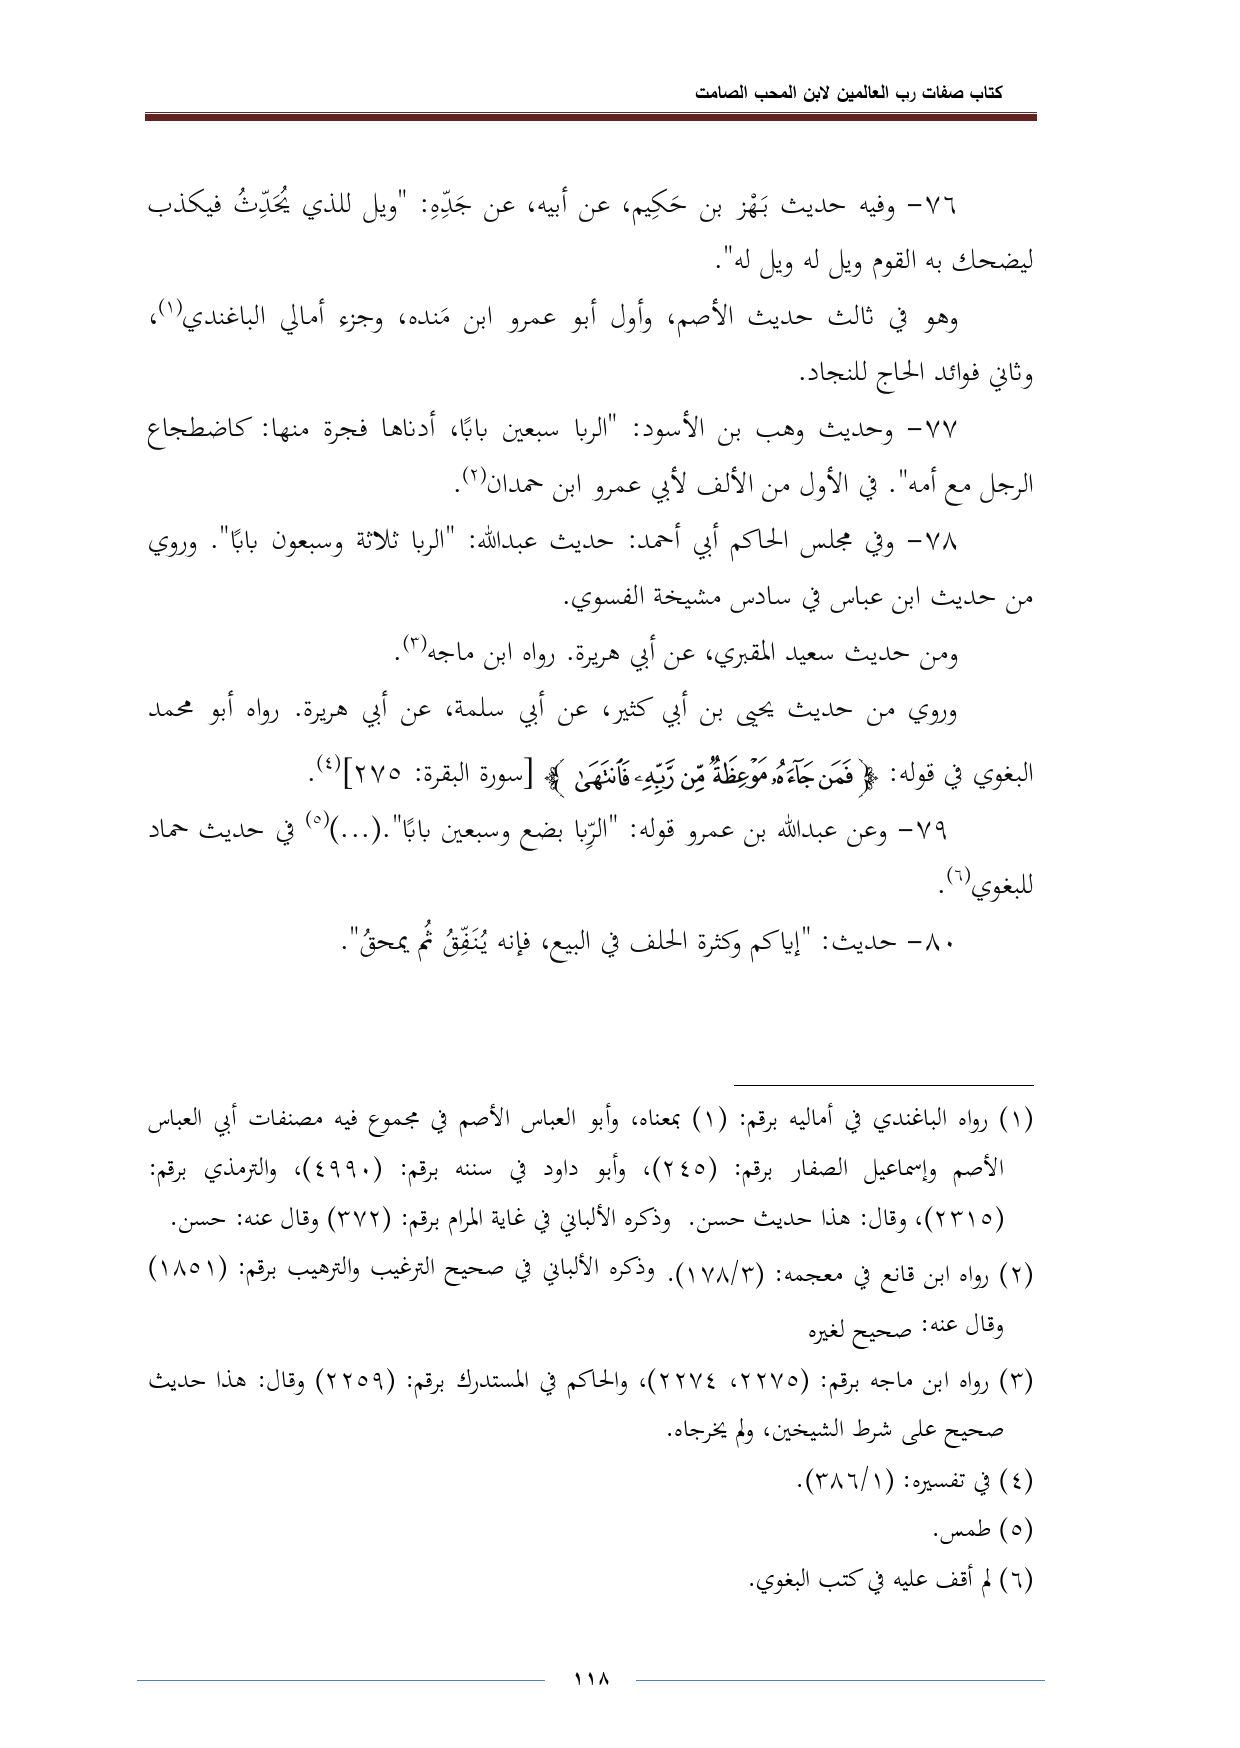 كتاب صفات رب العالمين لابن المحب الصامت
٧٦- وفيه حديث بَهْز بن حَكِيم، عن أبيه، عن جَدِّهِ: "ويل للذي يُحَدِّثُ فيكذب
ليضحك به القوم ويل له ويل له".
وهو في ثالث حديث الأصم، وأول أبو عمرو ابن مَنده، وجزء أمالي الباغندي(١)،
وثاني فوائد الحاج للنجاد.
٧٧- وحديث وهب بن الأسود: "الربا سبعين بابًا، أدناها فجرة منها: كاضطجاع
الرجل مع أمه". في الأول من الألف لأبي عمرو ابن حمدان(٢).
٧٨- وفي مجلس الحاكم أبي أحمد: حديث عبدالله: "الربا ثلاثة وسبعون بابًا". وروي
من حديث ابن عباس في سادس مشيخة الفسوي.
ومن حديث سعيد المقبري، عن أبي هريرة. رواه ابن ماجه(٣).
وروي من حديث يحيى بن أبي كثير، عن أبي سلمة، عن أبي هريرة. رواه أبو محمد
البغوي في قوله: ﴿فَمَن جَآءَهُۥ مَوۡعِظَةٞ مِّن رَّبِّهِۦ فَٱنتَهَىٰ﴾ [سورة البقرة: ٢٧٥](٤).
٧٩- وعن عبدالله بن عمرو قوله: "الرِّبا بضع وسبعين بابًا".(...)(٥) في حديث حماد
للبغوي(٦).
٨٠- حديث: "إياكم وكثرة الحلف في البيع، فإنه يُنَفِّقُ ثُم يمحقُ".
(١) رواه الباغندي في أماليه برقم: (١) بمعناه، وأبو العباس الأصم في مجموع فيه مصنفات أبي العباس
الأصم وإسماعيل الصفار برقم: (٢٤٥)، وأبو داود في سننه برقم: (٤٩٩٠)، والترمذي برقم:
(٢٣١٥)، وقال: هذا حديث حسن. وذكره الألباني في غاية المرام برقم: (٣٧٢) وقال عنه: حسن.
(٢) رواه ابن قانع في معجمه: (١٧٨/٣). وذكره الألباني في صحيح الترغيب والترهيب برقم: (١٨٥١)
وقال عنه: صحيح لغيره
(٣) رواه ابن ماجه برقم: (٢٢٧٥، ٢٢٧٤)، والحاكم في المستدرك برقم: (٢٢٥٩) وقال: هذا حديث
صحيح على شرط الشيخين، ولم يخرجاه.
(٤) في تفسيره: (٣٨٦/١).
(٥) طمس.
(٦) لم أقف عليه في كتب البغوي.
١١٨